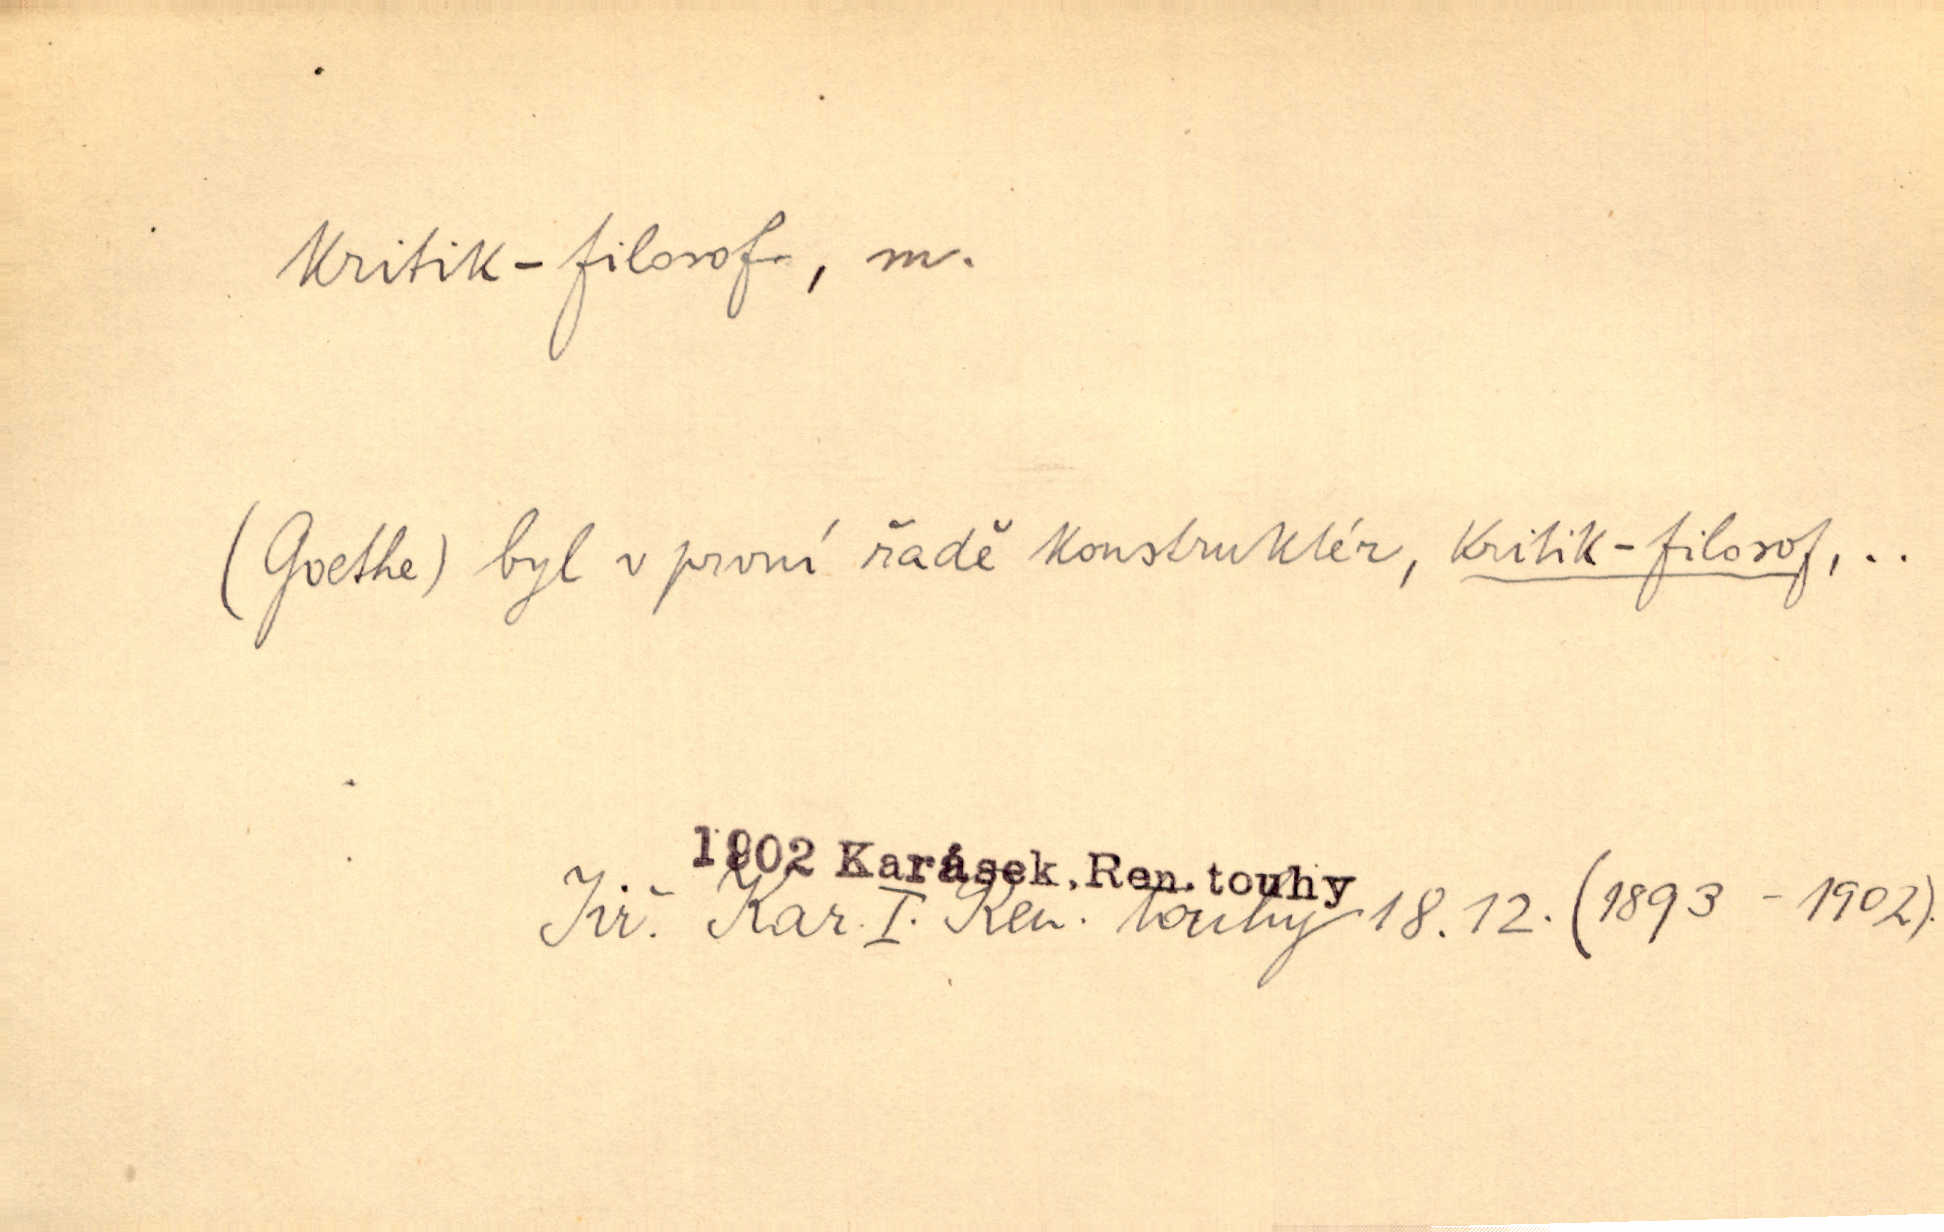 Kritik-filosof, m.
(Goethe) byl v první řadě konstruktér, kritik-filosof, ..
1902 Karásek, Ren. touhy
Jiř. Kar. I. Ren. touhy 18. 12. (1893 - 1902).